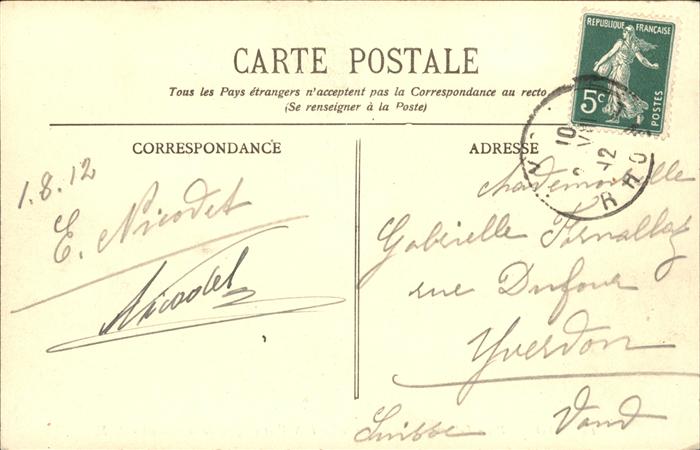 CARTE POSTALE
Tous les Pays étrangers n'acceptent pas la Correspondance au recto
(Se renseigner à la Poste)
REPUBLIQUE FRANÇAISE
5c
POSTES
10
12
RHO
CORRESPONDANCE
1.8.12
E. Nicodet
Nicodet
ADRESSE
Mademoiselle
Gabrielle
rue Dufour
Yverdon
Suisse Vaud